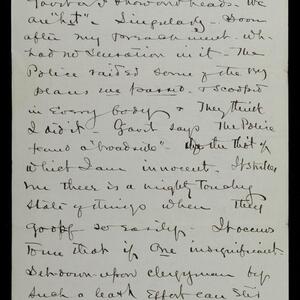 are "hit". Singularly - Soon
after my
had no sensation in it - The
Police raided some of the
plans we & scooped
in Every body & They think
I did it - Gavit says The Police
found a "broadside" - of
which I am innocent. It strikes
me there is a mighty touchy
state of things when they
go off so easily - It occurs
to me that if One insignificant
set-down-upon clergyman by
such a Effort can stir